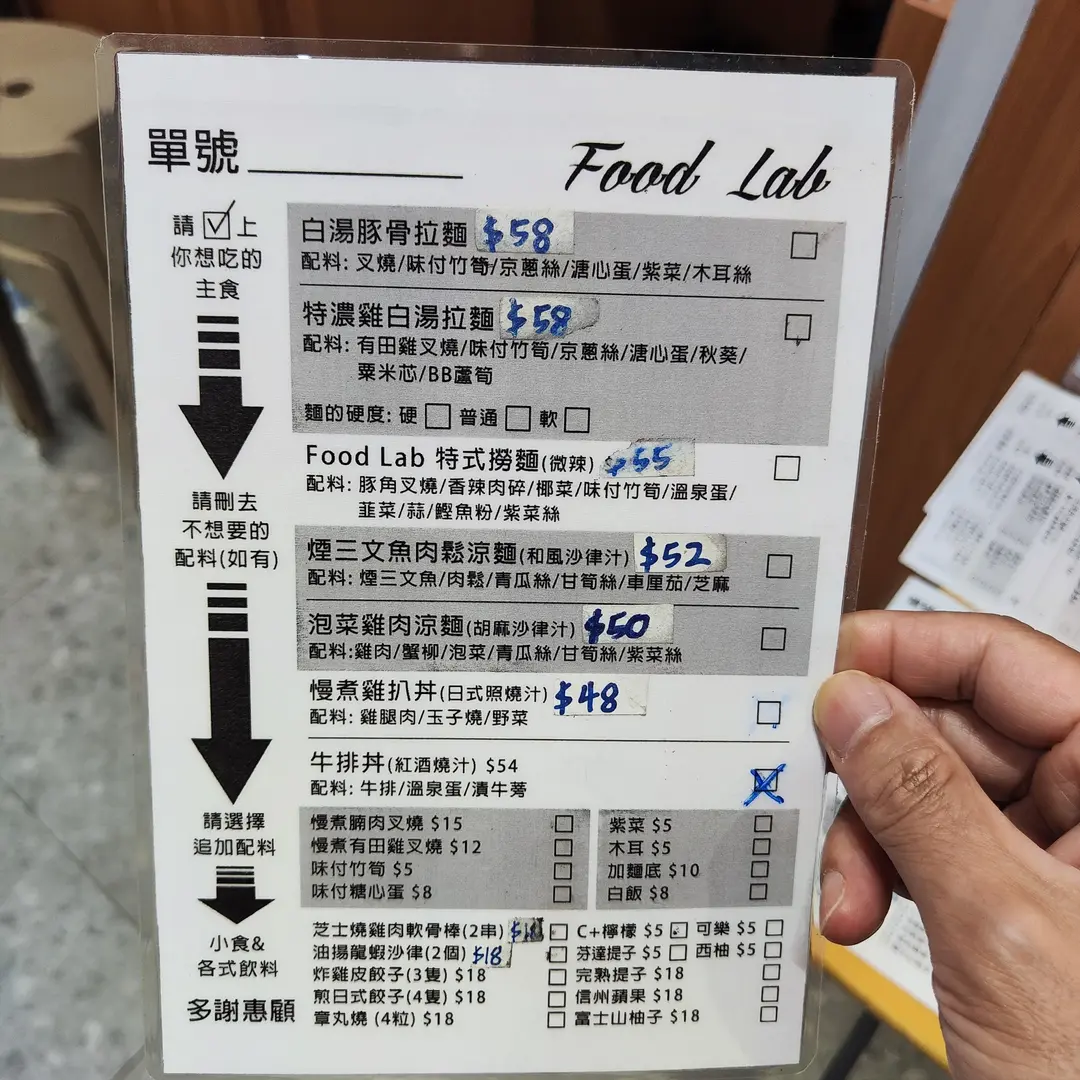 單號
Food Lab
請☑上
你想吃的
主食
白湯豚骨拉麵 $58
配料: 叉燒/味付竹筍/京蔥絲/溏心蛋/紫菜/木耳絲
特濃雞白湯拉麵 $58
配料: 有田雞叉燒/味付竹筍/京蔥絲/溏心蛋/秋葵/
粟米芯/BB蘆筍
麵的硬度: 硬 □ 普通 □ 軟 □
Food Lab 特式撈麵(微辣) $55
配料: 豚角叉燒/香辣肉碎/椰菜/味付竹筍/溫泉蛋/
韮菜/蒜/鰹魚粉/紫菜絲
請刪去
不想要的
配料(如有)
煙三文魚肉鬆涼麵(和風沙律汁) $52
配料: 煙三文魚/肉鬆/青瓜絲/甘筍絲/車厘茄/芝麻
泡菜雞肉涼麵(胡麻沙律汁) $50
配料:雞肉/蟹柳/泡菜/青瓜絲/甘筍絲/紫菜絲
慢煮雞扒丼(日式照燒汁) $48
配料: 雞腿肉/玉子燒/野菜
牛排丼(紅酒燒汁) $54
配料: 牛排/溫泉蛋/漬牛蒡
請選擇
追加配料
慢煮腩肉叉燒 $15
慢煮有田雞叉燒 $12
味付竹筍 $5
味付糖心蛋 $8
紫菜 $5
木耳 $5
加麵底 $10
白飯 $8
小食&
各式飲料
芝士燒雞肉軟骨棒(2串)
油揚龍蝦沙律(2個) $18
炸雞皮餃子(3隻) $18
煎日式餃子(4隻) $18
章丸燒 (4粒) $18
C+檸檬 $5 □ 可樂 $5
芬達提子 $5 □ 西柚 $5
完熟提子 $18
信州蘋果 $18
富士山柚子 $18
多謝惠顧